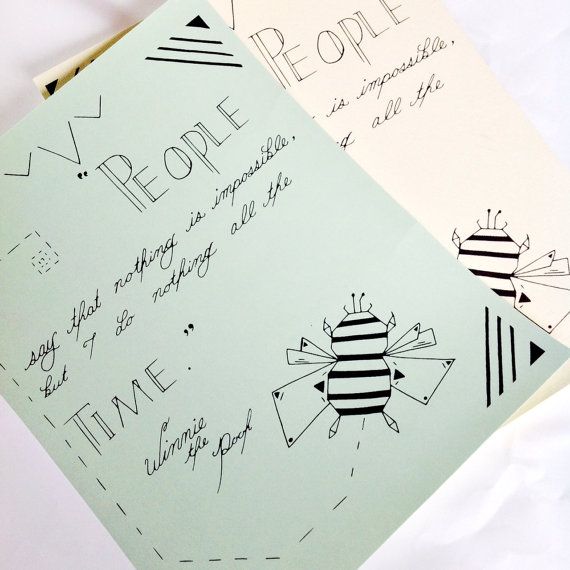 "PEOPLE
say that nothing is impossible,
but I do nothing all the
TIME."
Winnie
the Pooh
PEOPLE
is impossible,
all the